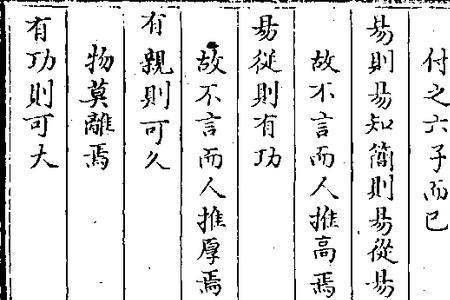 付之六子而已
易則易知簡則易從易
故不言而人推高焉
易從則有功
故不言而人推厚焉
有親則可久
物莫離焉
有功則可大